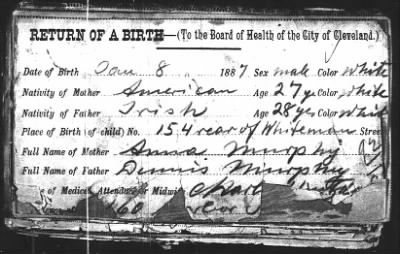 RETURN OF A BIRTH—(To the Board of Health of the City of Cleveland.)
Date of Birth Jan 8 1887 Sex male Color White
Nativity of Mother American Age 27 ys Color White
Nativity of Father Irish Age 28 ys Color White
Place of Birth (of child) No. 154 rear of Whiteman Street
Full Name of Mother Anna Murphy
Full Name of Father Dennis Murphy
e of Medical Attendant or Midwife
160 rear